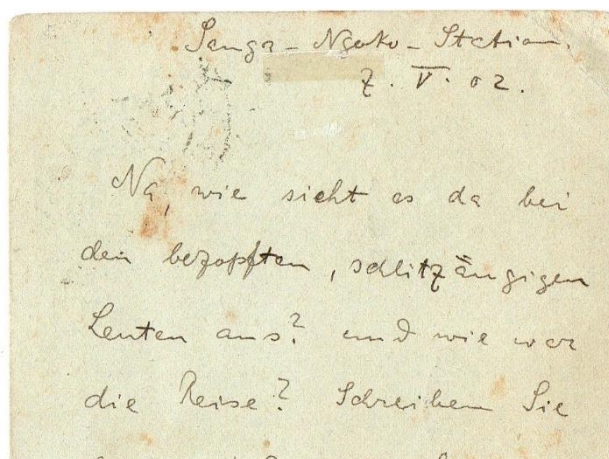 Sanga-Ngoko-Station.
7. V. 02.
Na, wie sieht es da bei
den bezopften, schlitzäugigen
Leuten aus? und wie war
die Reise? Schreiben Sie